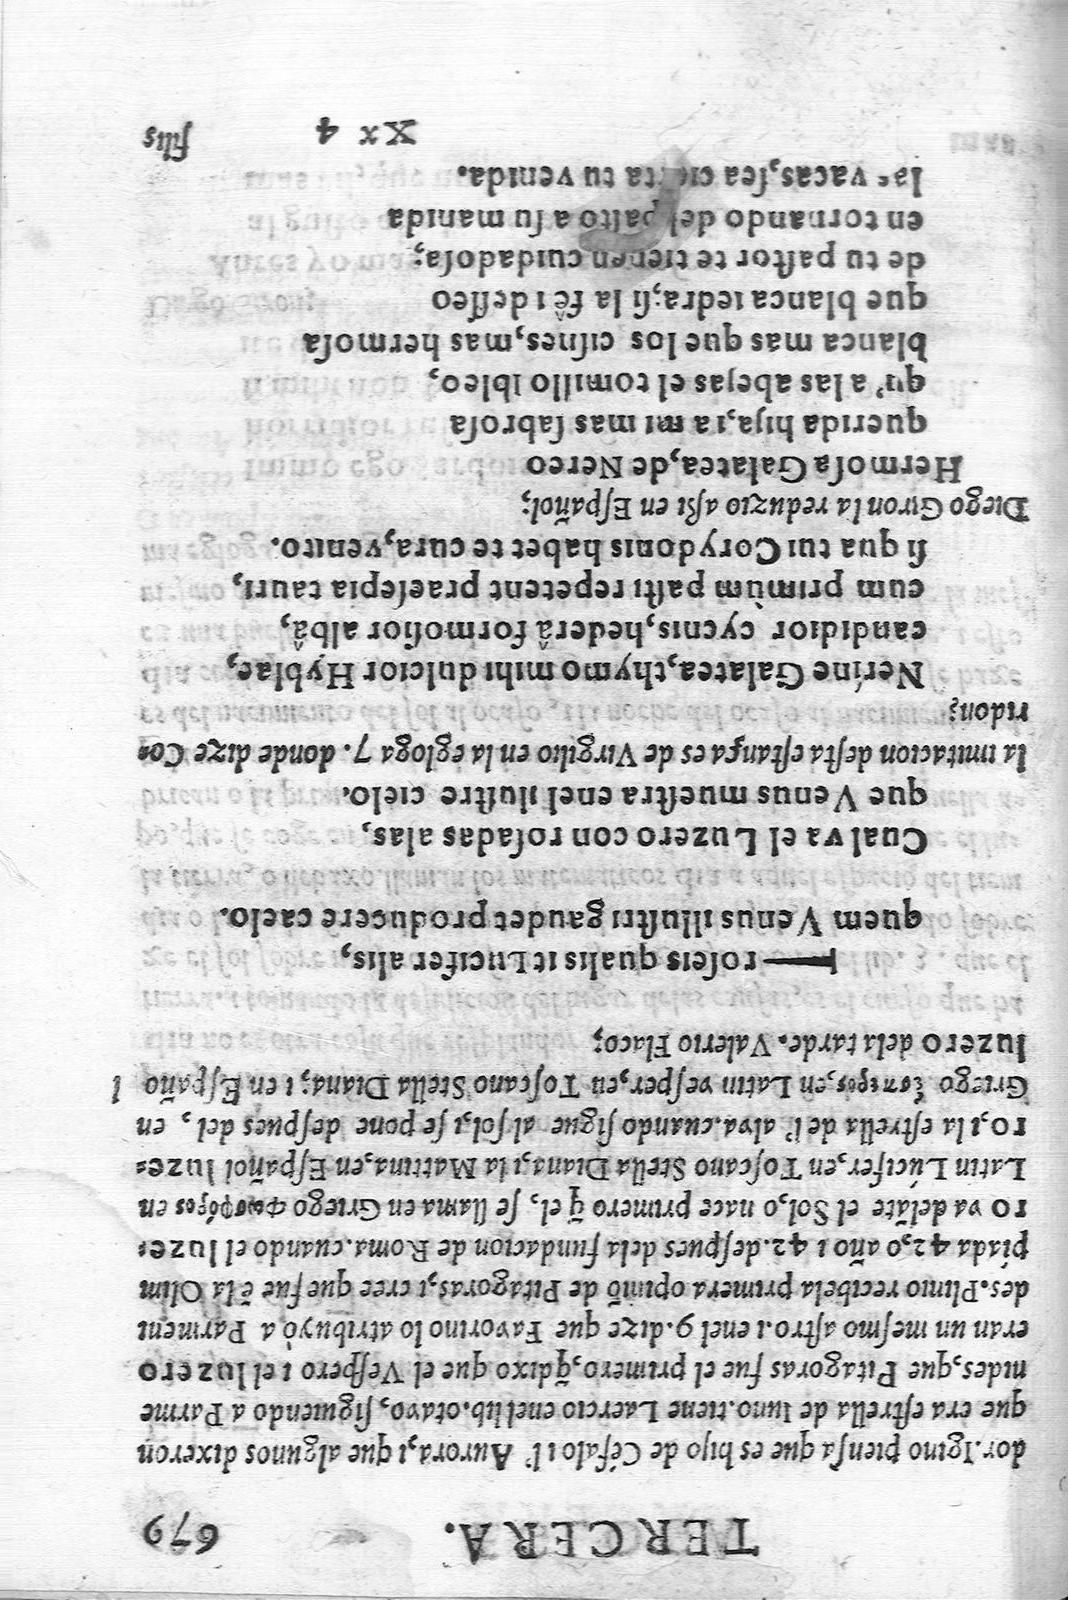 TERCERA. 679
dor. Igino piensa que es hijo de Céfalo i l' Aurora, i que algunos dixeron
que era estrella de Iuno. tiene Laercio enel lib. otavo, siguiendo a Parme
nides, que Pitagoras fue el primero, q̃ dixo que el Vespero i el luzero
eran un mesmo astro. i enel 9. dize que Favorino lo atribuyò a Parmeni
des. Plinio recibe la primera opiniõ de Pitagoras, i cree que fue ẽ la Olim
piada 42, o año 142. despues dela fundacion de Roma. cuando el luze:
ro va delãte el Sol, o nace primero q̃ el, se llama en Griego Φωσφόρος en
Latin Lúcifer, en Toscano Stella Diana, i la Mattina, en Español luze:
ro, i la estrella de l' alva. cuando sigue al sol, i se pone despues del, en
Griego ἕσπερος, en Latin vesper, en Toscano Stella Diana; i en Españo l
luzero dela tarde. Valerio Flaco;
— roseis qualis it Lucifer alis,
quem Venus illustri gaudet producere caelo.
Cual va el Luzero con rosadas alas,
que Venus muestra enel ilustre cielo.
la imitacion desta estança es de Virgilio en la egloga 7. donde dize Co:
ridon;
Neríne Galatea, thymo mihi dulcior Hyblae,
candidior cycnis, hederâ formosior albâ,
cum primùm pasti repetent praesepia tauri,
si qua tui Corydonis habet te cura, venito.
Diego Giron la reduzio assi en Español;
Hermosa Galatea, de Nereo
querida hija, i a mi mas sabrosa
qu' a las abejas el tomillo ibleo;
blanca mas que los cisnes, mas hermosa
que blanca iedra; si la fê i desseo
de tu pastor te tienen cuidadosa;
en tornando del pasto a su manida
las vacas, sea cierta tu venida.
Xx 4 filis